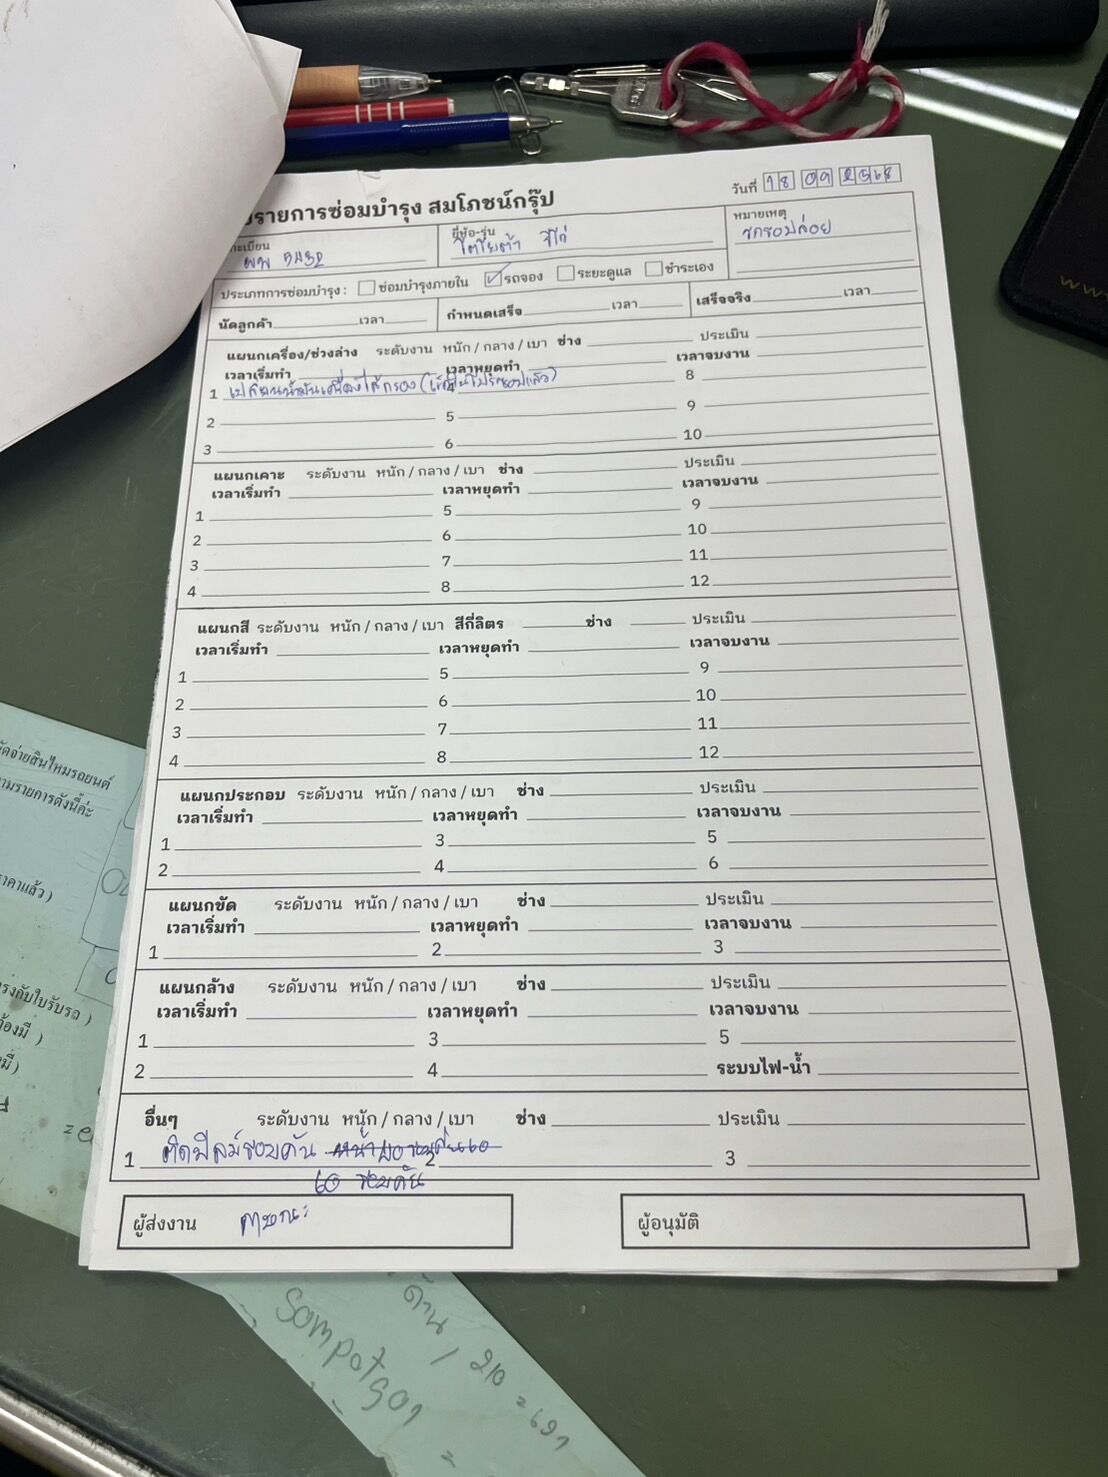 รายการซ่อมบำรุง สมโภชน์กรุ๊ป
วันที่ 18 09 2568
ทะเบียน
ยี่ห้อ-รุ่น โตโยต้า รีโว่
หมายเหตุ
รถรอปล่อย
ประเภทการซ่อมบำรุง : ซ่อมบำรุงภายใน ✓ รถจอง ระยะดูแล ชำระเอง
นัดลูกค้า เวลา กำหนดเสร็จ เวลา เสร็จจริง เวลา
แผนกเครื่อง/ช่วงล่าง ระดับงาน หนัก / กลาง / เบา ช่าง ประเมิน
เวลาเริ่มทำ เวลาหยุดทำ เวลาจบงาน
1 เปลี่ยนน้ำมันเครื่องไส้กรอง 4 8
2 5 9
3 6 10
แผนกเคาะ ระดับงาน หนัก / กลาง / เบา ช่าง ประเมิน
เวลาเริ่มทำ เวลาหยุดทำ เวลาจบงาน
1 5 9
2 6 10
3 7 11
4 8 12
แผนกสี ระดับงาน หนัก / กลาง / เบา สีกี่ลิตร ช่าง ประเมิน
เวลาเริ่มทำ เวลาหยุดทำ เวลาจบงาน
1 5 9
2 6 10
3 7 11
4 8 12
แผนกประกอบ ระดับงาน หนัก / กลาง / เบา ช่าง ประเมิน
เวลาเริ่มทำ เวลาหยุดทำ เวลาจบงาน
1 3 5
2 4 6
แผนกขัด ระดับงาน หนัก / กลาง / เบา ช่าง ประเมิน
เวลาเริ่มทำ เวลาหยุดทำ เวลาจบงาน
1 2 3
แผนกล้าง ระดับงาน หนัก / กลาง / เบา ช่าง ประเมิน
เวลาเริ่มทำ เวลาหยุดทำ เวลาจบงาน
1 3 5
2 4 ระบบไฟ-น้ำ
อื่นๆ ระดับงาน หนัก / กลาง / เบา ช่าง ประเมิน
1 ติดฟิล์มรอบคัน 2 3
60 รอบคัน
ผู้ส่งงาน
ผู้อนุมัติ
จ่ายสินไหมรถยนต์
ามรายการดังนี้ค่ะ
าคาแล้ว )
รงกับใบรับรถ )
ต้องมี )
ด้าน / 210 = 691